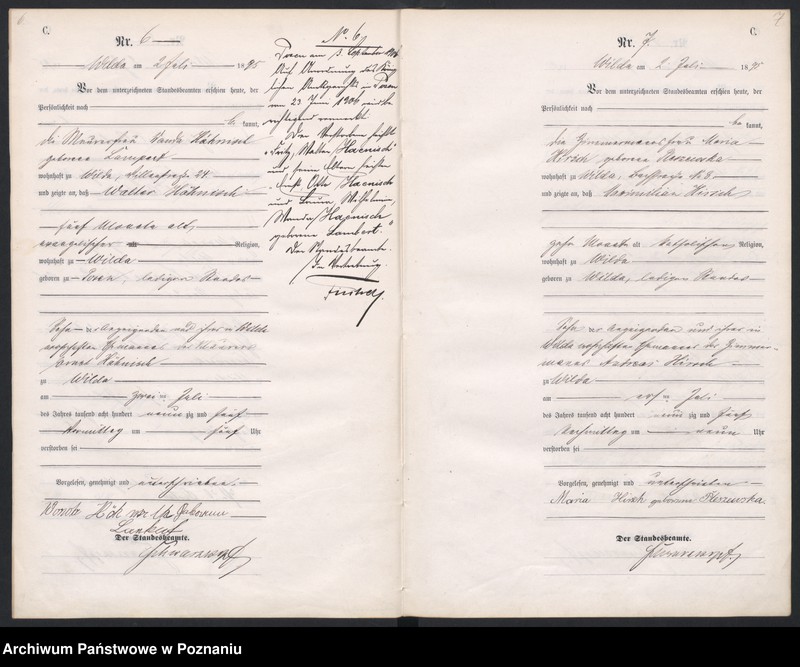 6
C.
Nr. 6
Wilda am 2 Juli 1895
Vor dem unterzeichneten Standesbeamten erschien heute, der
Persönlichkeit nach
be kannt,
die Maurerfrau Wanda Hähnisch
geborene Lampert
wohnhaft zu Wilda,
und zeigte an, daß Walter Hähnisch
fünf Monate alt,
evangelischer Religion,
wohnhaft zu Wilda
geboren zu Posen, ledigen Standes
Sohn der Anzeigenden und ihres in Wilda
wohnhaften Ehemannes des Maurers
Ernst Hähnisch
zu Wilda
am zwei ten Juli
des Jahres tausend acht hundert neun zig und fünf
Vormittag um fünf Uhr
verstorben sei
Vorgelesen, genehmigt und unterschrieben
Wanda geborene
Der Standesbeamte.
Schwarzkopf
No. 6
Posen am 3. September 1906
Auf Anordnung des König-
lichen Amtsgerichts in Posen
vom 23 Juni 1906 wird be-
richtigend vermerkt:
Der Verstorbene heißt
"Fritz Walter Haenisch"
und seine Eltern heißen
Ernst Otto Haenisch
und Wilhelmine
Wanda Haenisch
geborene Lambert."
Der Standesbeamte
In Vertretung.
7
C.
Nr. 7
Wilda am 2 Juli 1895
Vor dem unterzeichneten Standesbeamten erschien heute, der
Persönlichkeit nach
be kannt,
die Zimmermannsfrau Maria
Hirsch, geborene
wohnhaft zu Wilda, No 8
und zeigte an, daß Maximilian Hirsch
zehn Monate alt katholischer Religion,
wohnhaft zu Wilda
geboren zu Wilda, ledigen Standes
Sohn der Anzeigenden und ihres in
Wilda wohnhaften Ehemannes des Zimmer-
manns Andreas Hirsch
zu Wilda
am ersten Juli
des Jahres tausend acht hundert neun zig und fünf
Nachmittag um neun Uhr
verstorben sei
Vorgelesen, genehmigt und unterschrieben
Maria Hirsch geborene
Der Standesbeamte.
Schwarzkopf
Archiwum Państwowe w Poznaniu